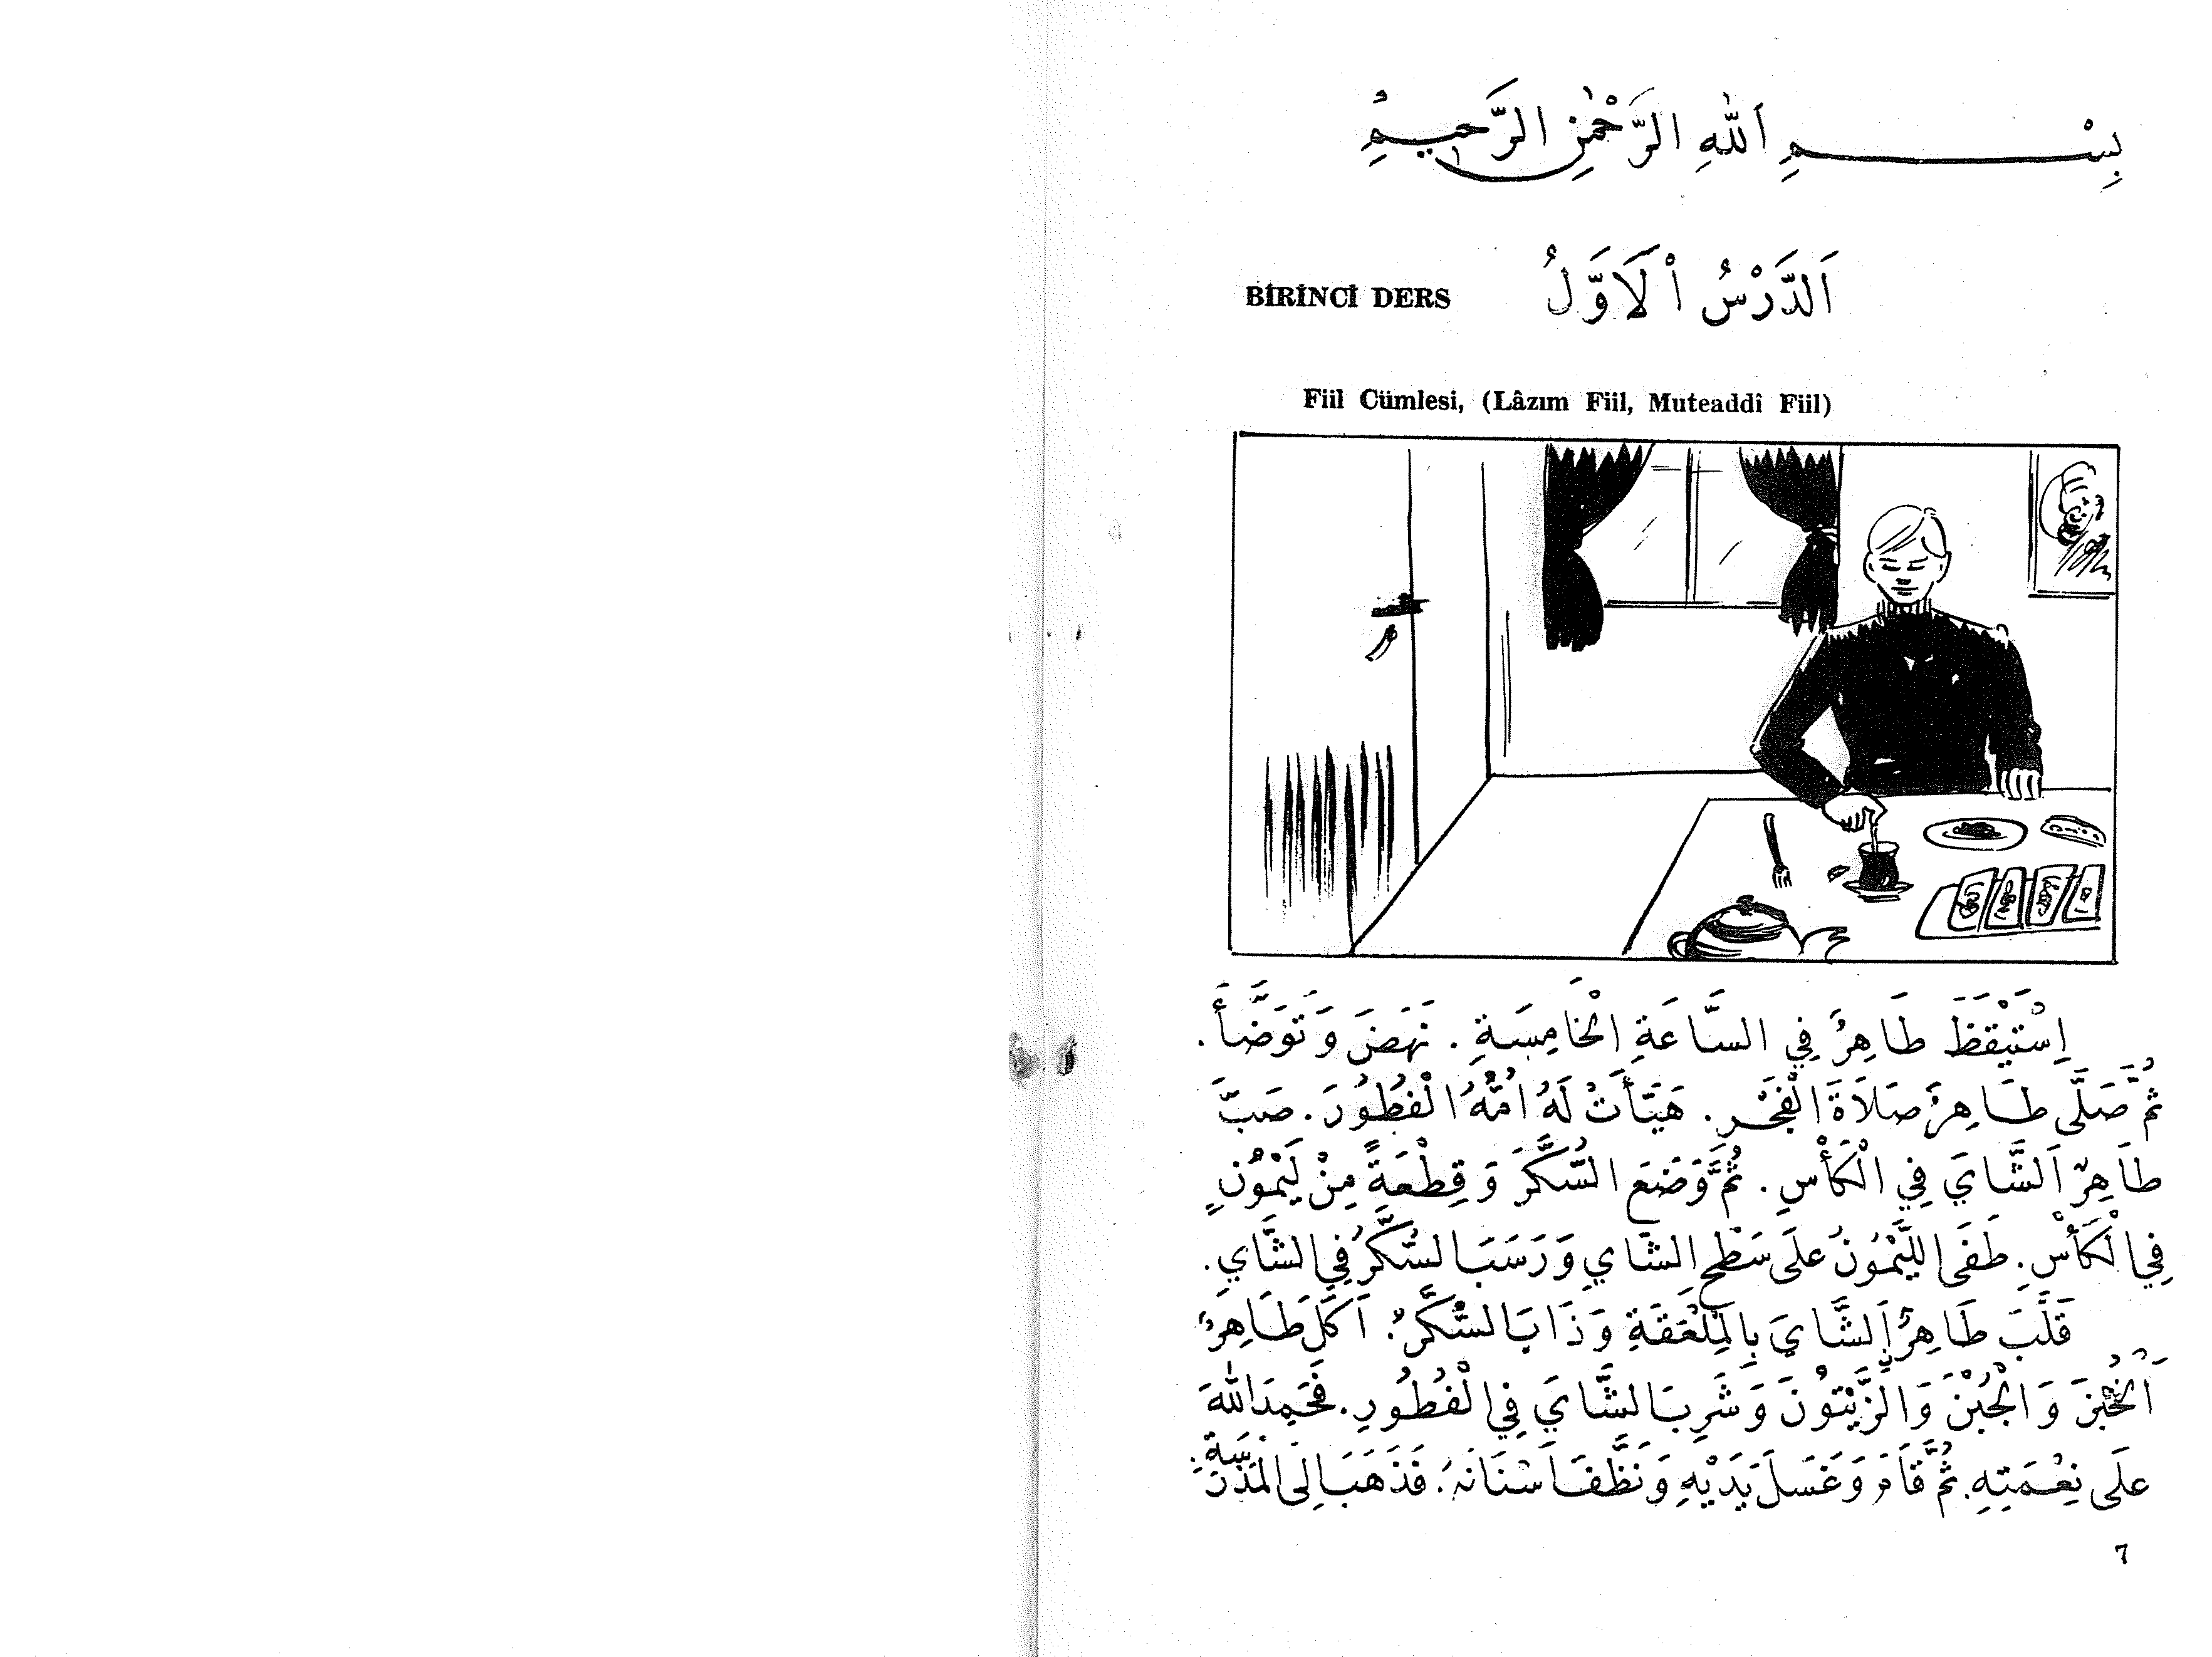 بِسْـــــمِ اَللّٰهِ الرَّحْمٰنِ الرَّحِيـمِ
BİRİNCİ DERS اَلدَّرْسُ اْلاَوَّلُ
Fiil Cümlesi, (Lâzım Fiil, Muteaddî Fiil)
اِسْتَيْقَظَ طَاهِرٌ فِي السَّاعَةِ الْخَامِسَةِ . نَهَضَ وَ تَوَضَّأَ .
ثُمَّ صَلَّى طَاهِرٌ صَلاَةَ الْفَجْرِ . هَيَّأَتْ لَهُ اُمُّهُ الْفُطُورَ . صَبَّ
طَاهِرٌ اَلشَّايَ فِي الْكَأْسِ . ثُمَّ وَضَعَ السُّكَّرَ وَ قِطْعَةً مِنْ لَيْمُونٍ
فِي الْكَأْسِ . طَفَى اللَّيْمُونُ عَلَى سَطْحِ الشَّايِ وَ رَسَبَ السُّكَّرُ فِي الشَّايِ .
قَلَّبَ طَاهِرٌ اَلشَّايَ بِالْمِلْعَقَةِ وَ ذَابَ السُّكَّرُ . اَكَلَ طَاهِرٌ
اَلْخُبْزَ وَ الْجُبْنَ وَ الزَّيْتُونَ وَ شَرِبَ الشَّايَ فِي الْفُطُورِ . فَحَمِدَ اللّٰهَ
عَلَى نِعْمَتِهِ . ثُمَّ قَامَ وَ غَسَلَ يَدَيْهِ وَ نَظَّفَ اَسْنَانَهُ . فَذَهَبَ اِلَى الْمَدْرَسَةِ .
7